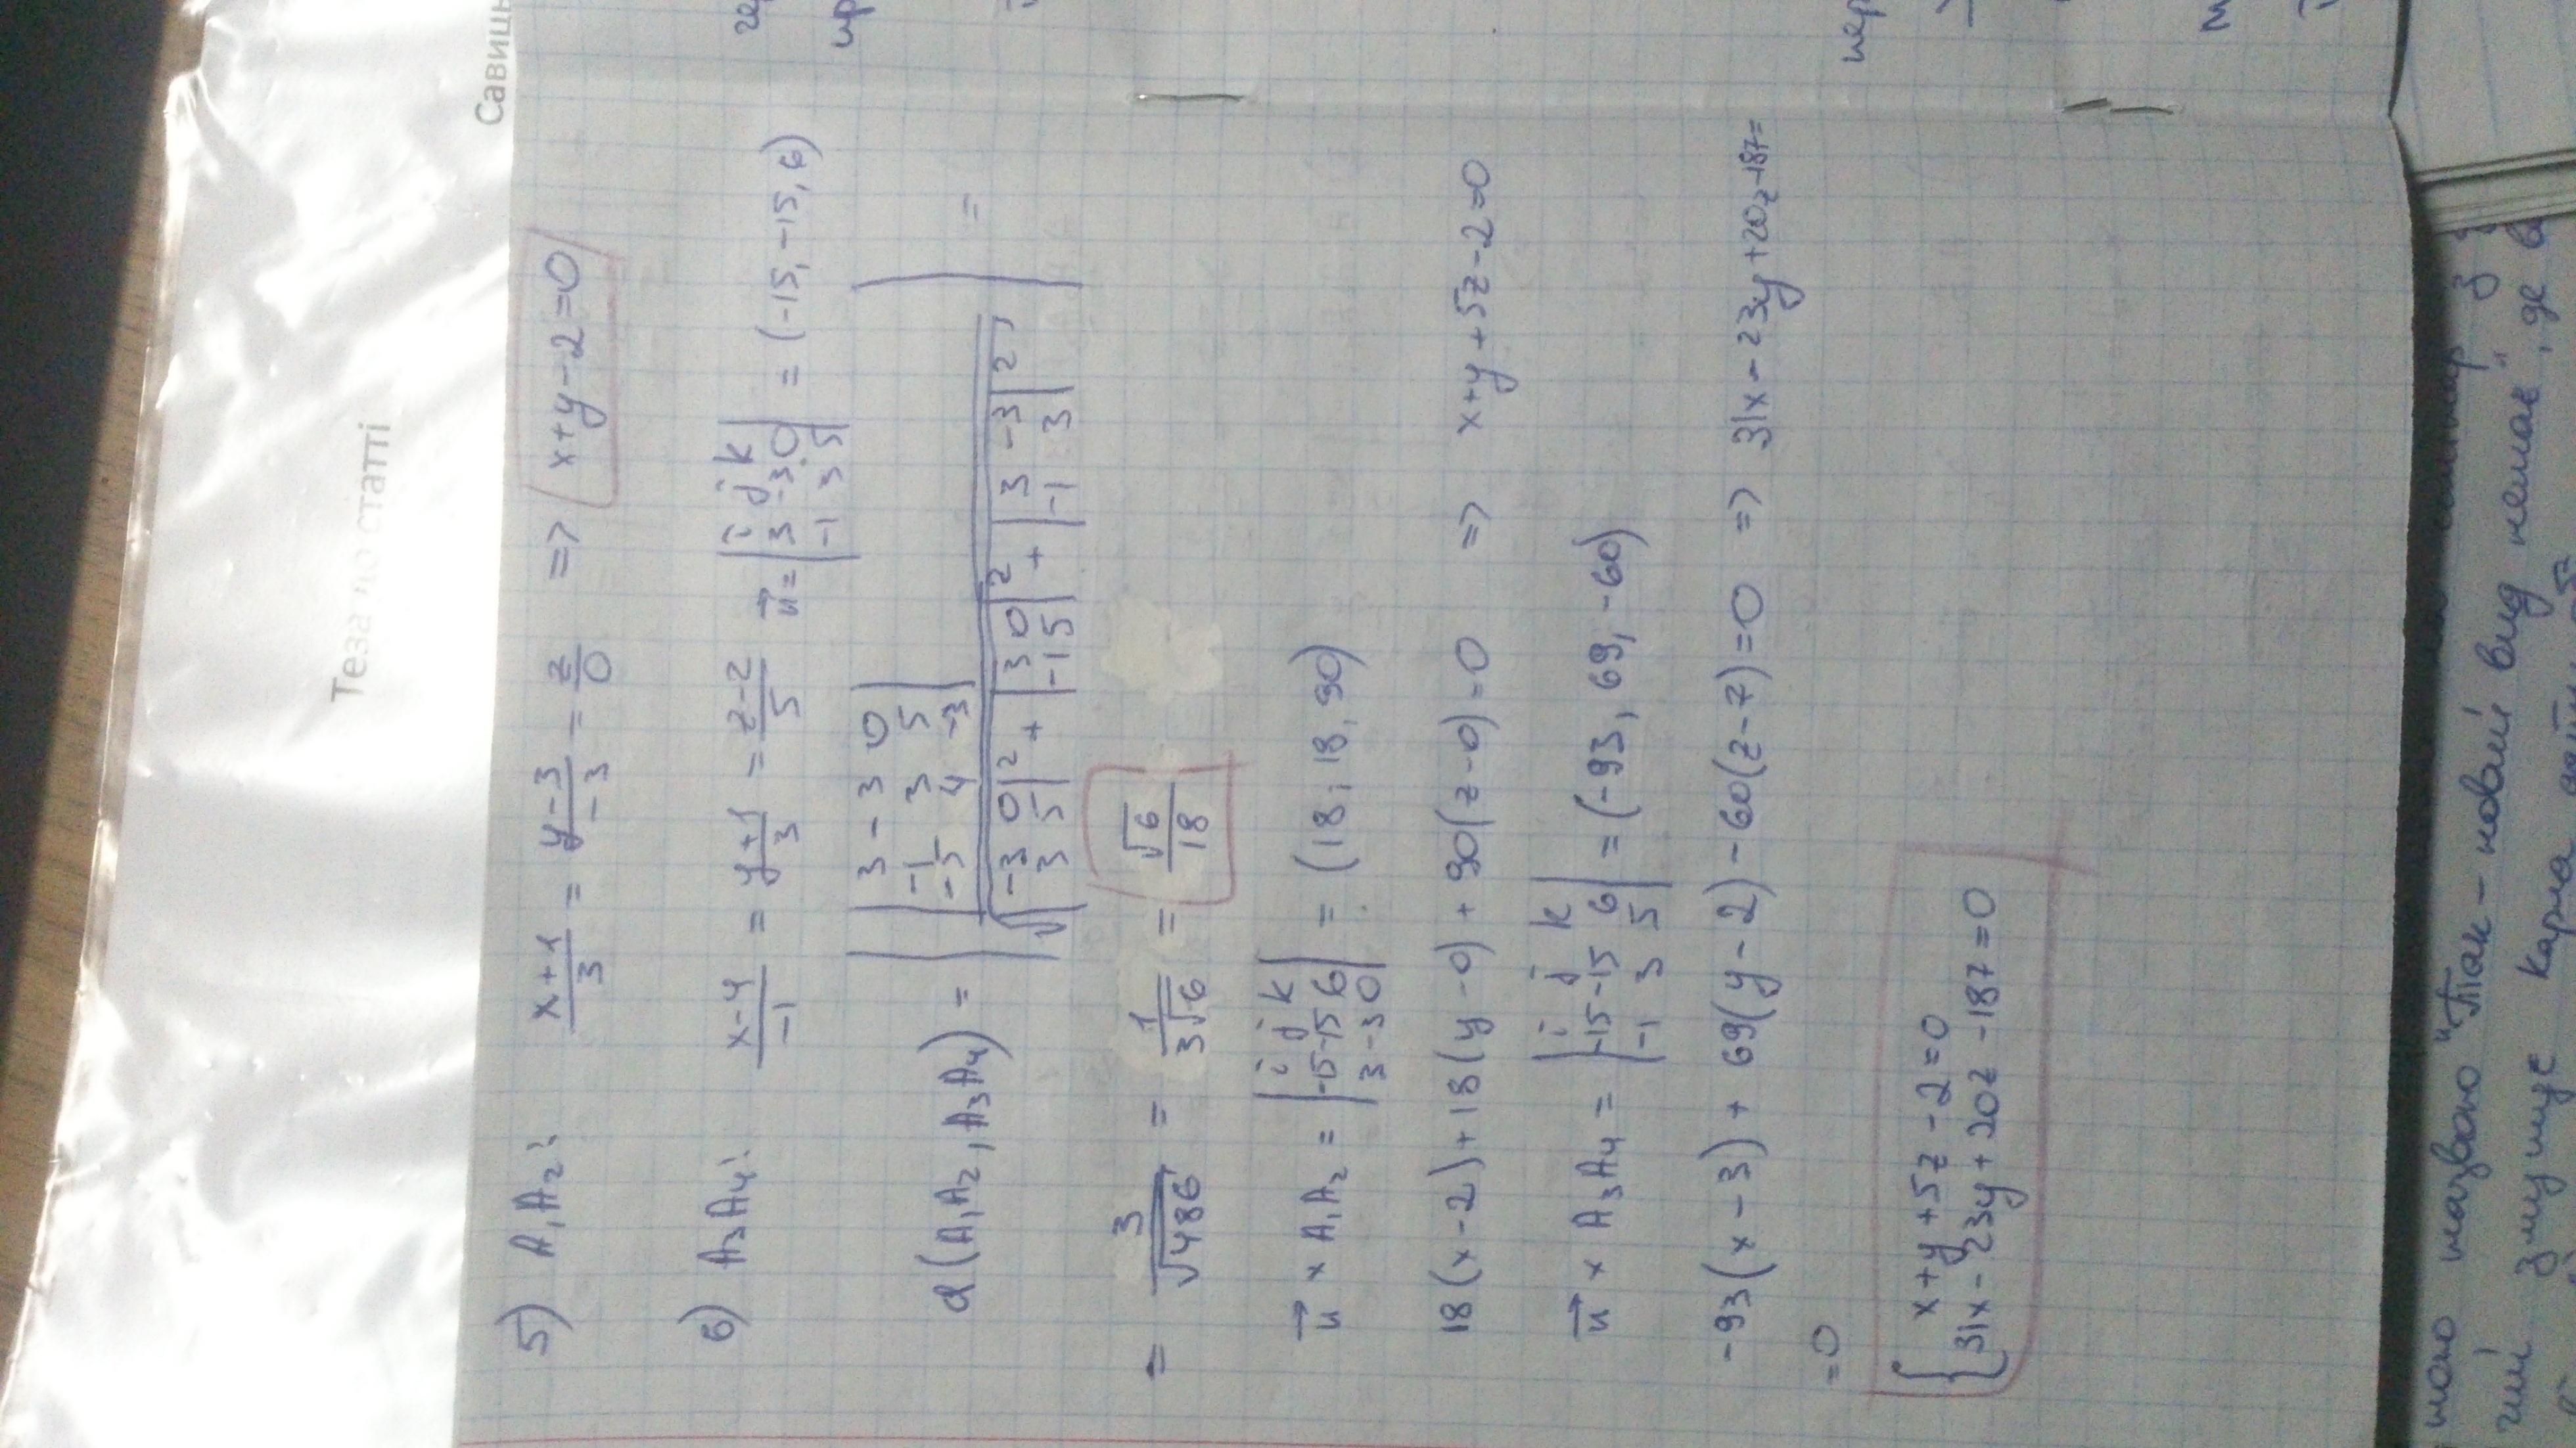 Теза по статті
Савиць
5) A₁A₂: (x+1)/3 = (y-3)/-3 = z/0 => x+y-2=0
6) A₃A₄: (x-4)/-1 = (y+1)/3 = (z-2)/5 n⃗ = |i j k; 3 -3 0; -1 3 5| = (-15, -15, 6)
d(A₁A₂, A₃A₄) = | |3 -3 0; -1 3 5; -5 4 -3| / √(|-3 0; 3 5|² + |3 0; -1 5|² + |3 -3; -1 3|²) | =
= 3/√486 = 1/(3√6) = √6/18
n⃗ × A₁A₂ = |i j k; -15 -15 6; 3 -3 0| = (18, 18, 90)
18(x-2)+18(y-0)+90(z-0)=0 => x+y+5z-2=0
n⃗ × A₃A₄ = |i j k; -15 -15 6; -1 3 5| = (-93, 69, -60)
-93(x-3)+69(y-2)-60(z-7)=0 => 31x-23y+20z-187=
=0
{ x+y+5z-2=0
31x-23y+20z-187=0
ною назвою "Так - новий вид немає", де в
змушує Карла